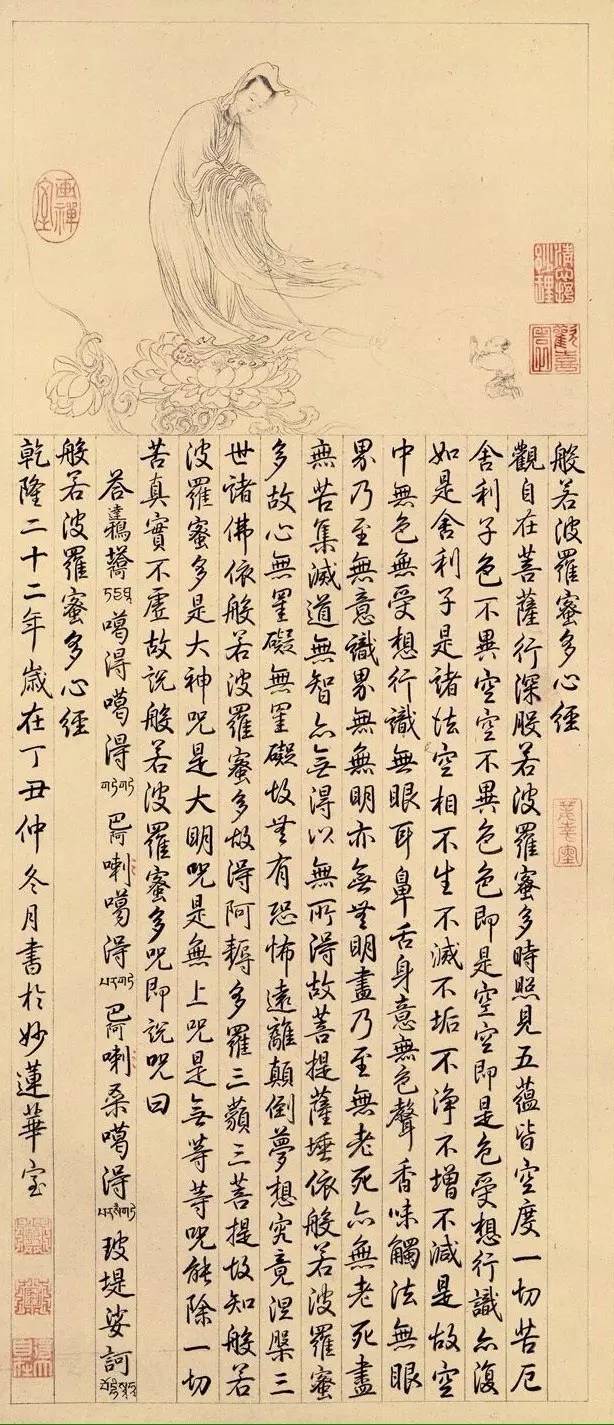 畫禪室
般若波羅蜜多心經
觀自在菩薩行深般若波羅蜜多時照見五蘊皆空度一切苦厄
舍利子色不異空空不異色色即是空空即是色受想行識亦復
如是舍利子是諸法空相不生不滅不垢不淨不增不減是故空
中無色無受想行識無眼耳鼻舌身意無色聲香味觸法無眼
界乃至無意識界無無明亦無無明盡乃至無老死亦無老死盡
無苦集滅道無智亦無得以無所得故菩提薩埵依般若波羅蜜
多故心無罣礙無罣礙故無有恐怖遠離顛倒夢想究竟涅槃三
世諸佛依般若波羅蜜多故得阿耨多羅三藐三菩提故知般若
波羅蜜多是大神咒是大明咒是無上咒是無等等咒能除一切
苦真實不虛故說般若波羅蜜多咒即說咒曰
答噶得噶得巴阿喇噶得巴阿喇桑噶得玻堤娑訶
般若波羅蜜多心經
乾隆二十二年歲在丁丑仲冬月書於妙蓮華室